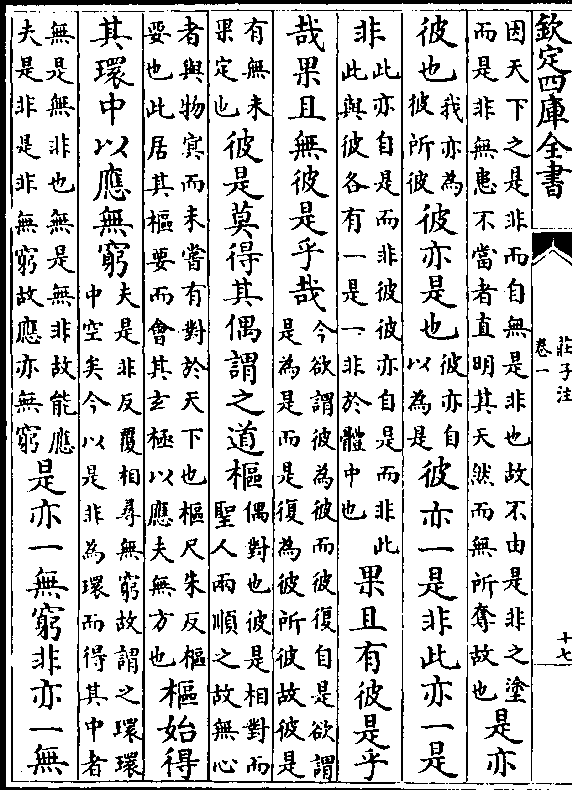 欽定四庫全書
莊子注
卷一
十七
因天下之是非而自無是非也故不由是非之塗
而是非無患不當者直明其天然而無所奪故也
是亦
彼也
我亦為
彼所彼
彼亦是也
彼亦自
以為是
彼亦一是非此亦一是
非
此亦自是而非彼彼亦自是而非此
此與彼各有一是一非於體中也
果且有彼是乎
哉果且無彼是乎哉
今欲謂彼為彼而彼復自是欲謂
是為是而是復為彼所彼故彼是
有無未
果定也
彼是莫得其偶謂之道樞
偶對也彼是相對而
聖人兩順之故無心
者與物㝠而未嘗有對於天下也樞尺朱反樞
要也此居其樞要而會其玄極以應夫無方也
樞始得
其環中以應無窮
夫是非反覆相尋無窮故謂之環環
中空矣今以是非為環而得其中者
無是無非也無是無非故能應
夫是非是非無窮故應亦無窮
是亦一無窮非亦一無